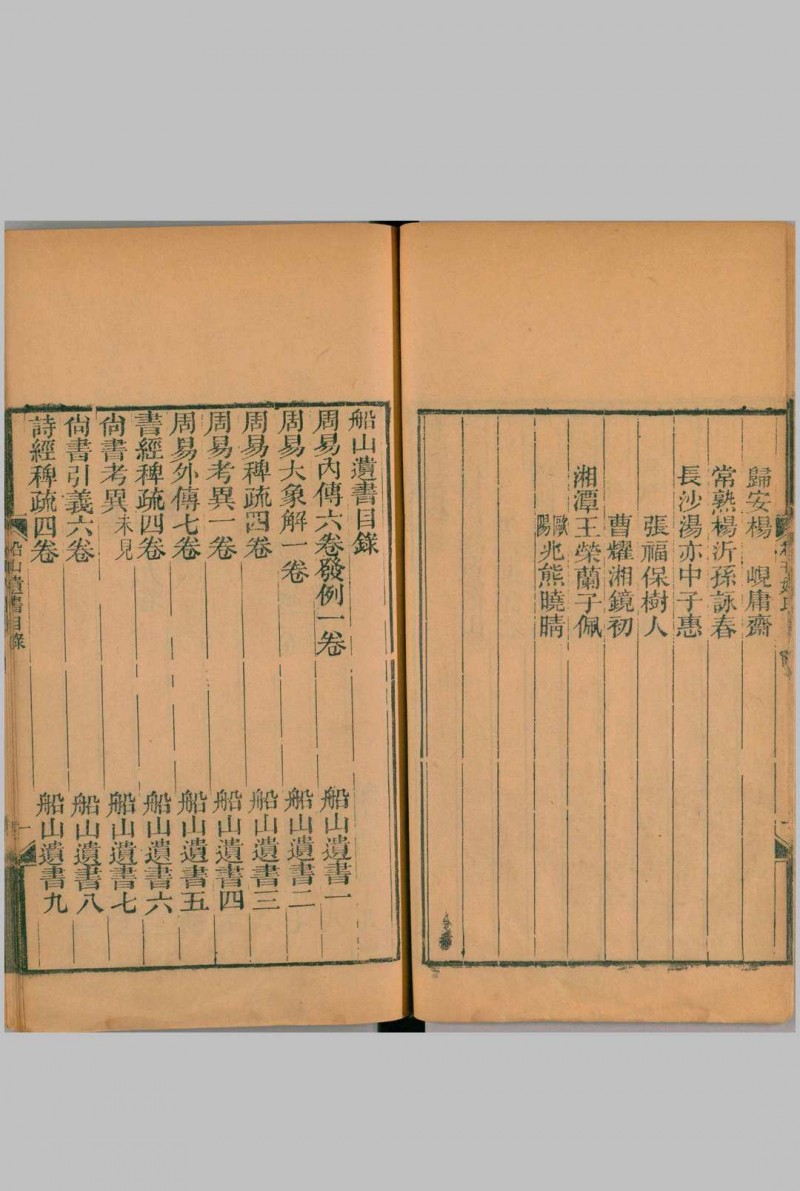 歸安楊　峴庸齋
常熟楊沂孫詠春
長沙湯亦中子惠
張福保樹人
曹耀湘鏡初
湘潭王榮蘭子佩
歐陽兆熊曉晴
船山遺書目錄
周易內傳六卷發例一卷　船山遺書一
周易大象解一卷　船山遺書二
周易稗疏四卷　船山遺書三
周易考異一卷　船山遺書四
周易外傳七卷　船山遺書五
書經稗疏四卷　船山遺書六
尙書考異未見　船山遺書七
尙書引義六卷　船山遺書八
詩經稗疏四卷　船山遺書九
船山遺書目錄
一